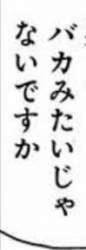 バカみたいじゃ
ないですか